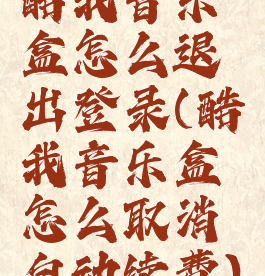 酷我音乐
盒怎么退
出登录(酷
我音乐盒
怎么取消
自动续费)